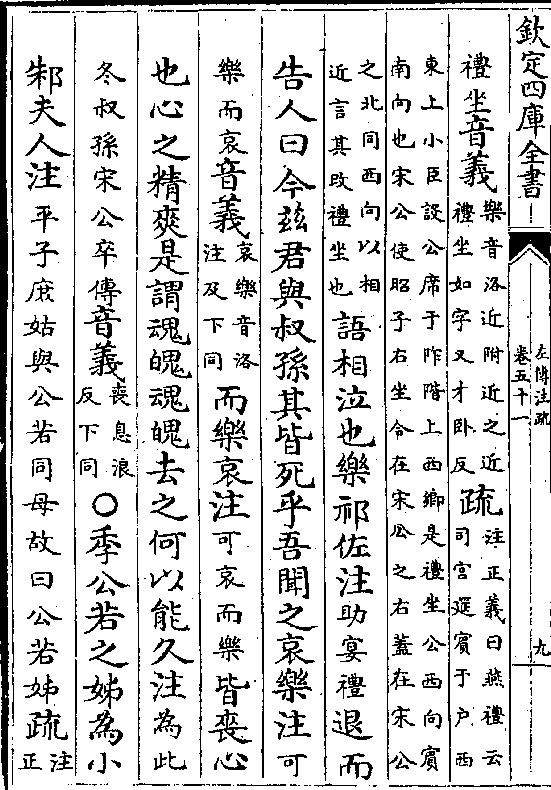 欽定四庫全書
左傳注疏
卷五十一
九
禮坐音義樂音洛近附近之近
禮坐如字又才卧反疏注正義曰燕禮云
司宮筵賓于户西
東上小臣設公席于阼階上西鄉是禮坐公西向賓
南向也宋公使昭子右坐令在宋公之右蓋在宋公
之北同西向以相
近言其改禮坐也語相泣也樂祁佐注助宴禮退而
告人曰今兹君與叔孫其皆死乎吾聞之哀樂注可
樂而哀音義哀樂音洛
注及下同而樂哀注可哀而樂皆喪心
也心之精爽是謂魂魄魂魄去之何以能久注為此
冬叔孫宋公卒傳音義喪息浪
反下同〇季公若之姊為小
邾夫人注平子庶姑與公若同母故曰公若姊疏注
正